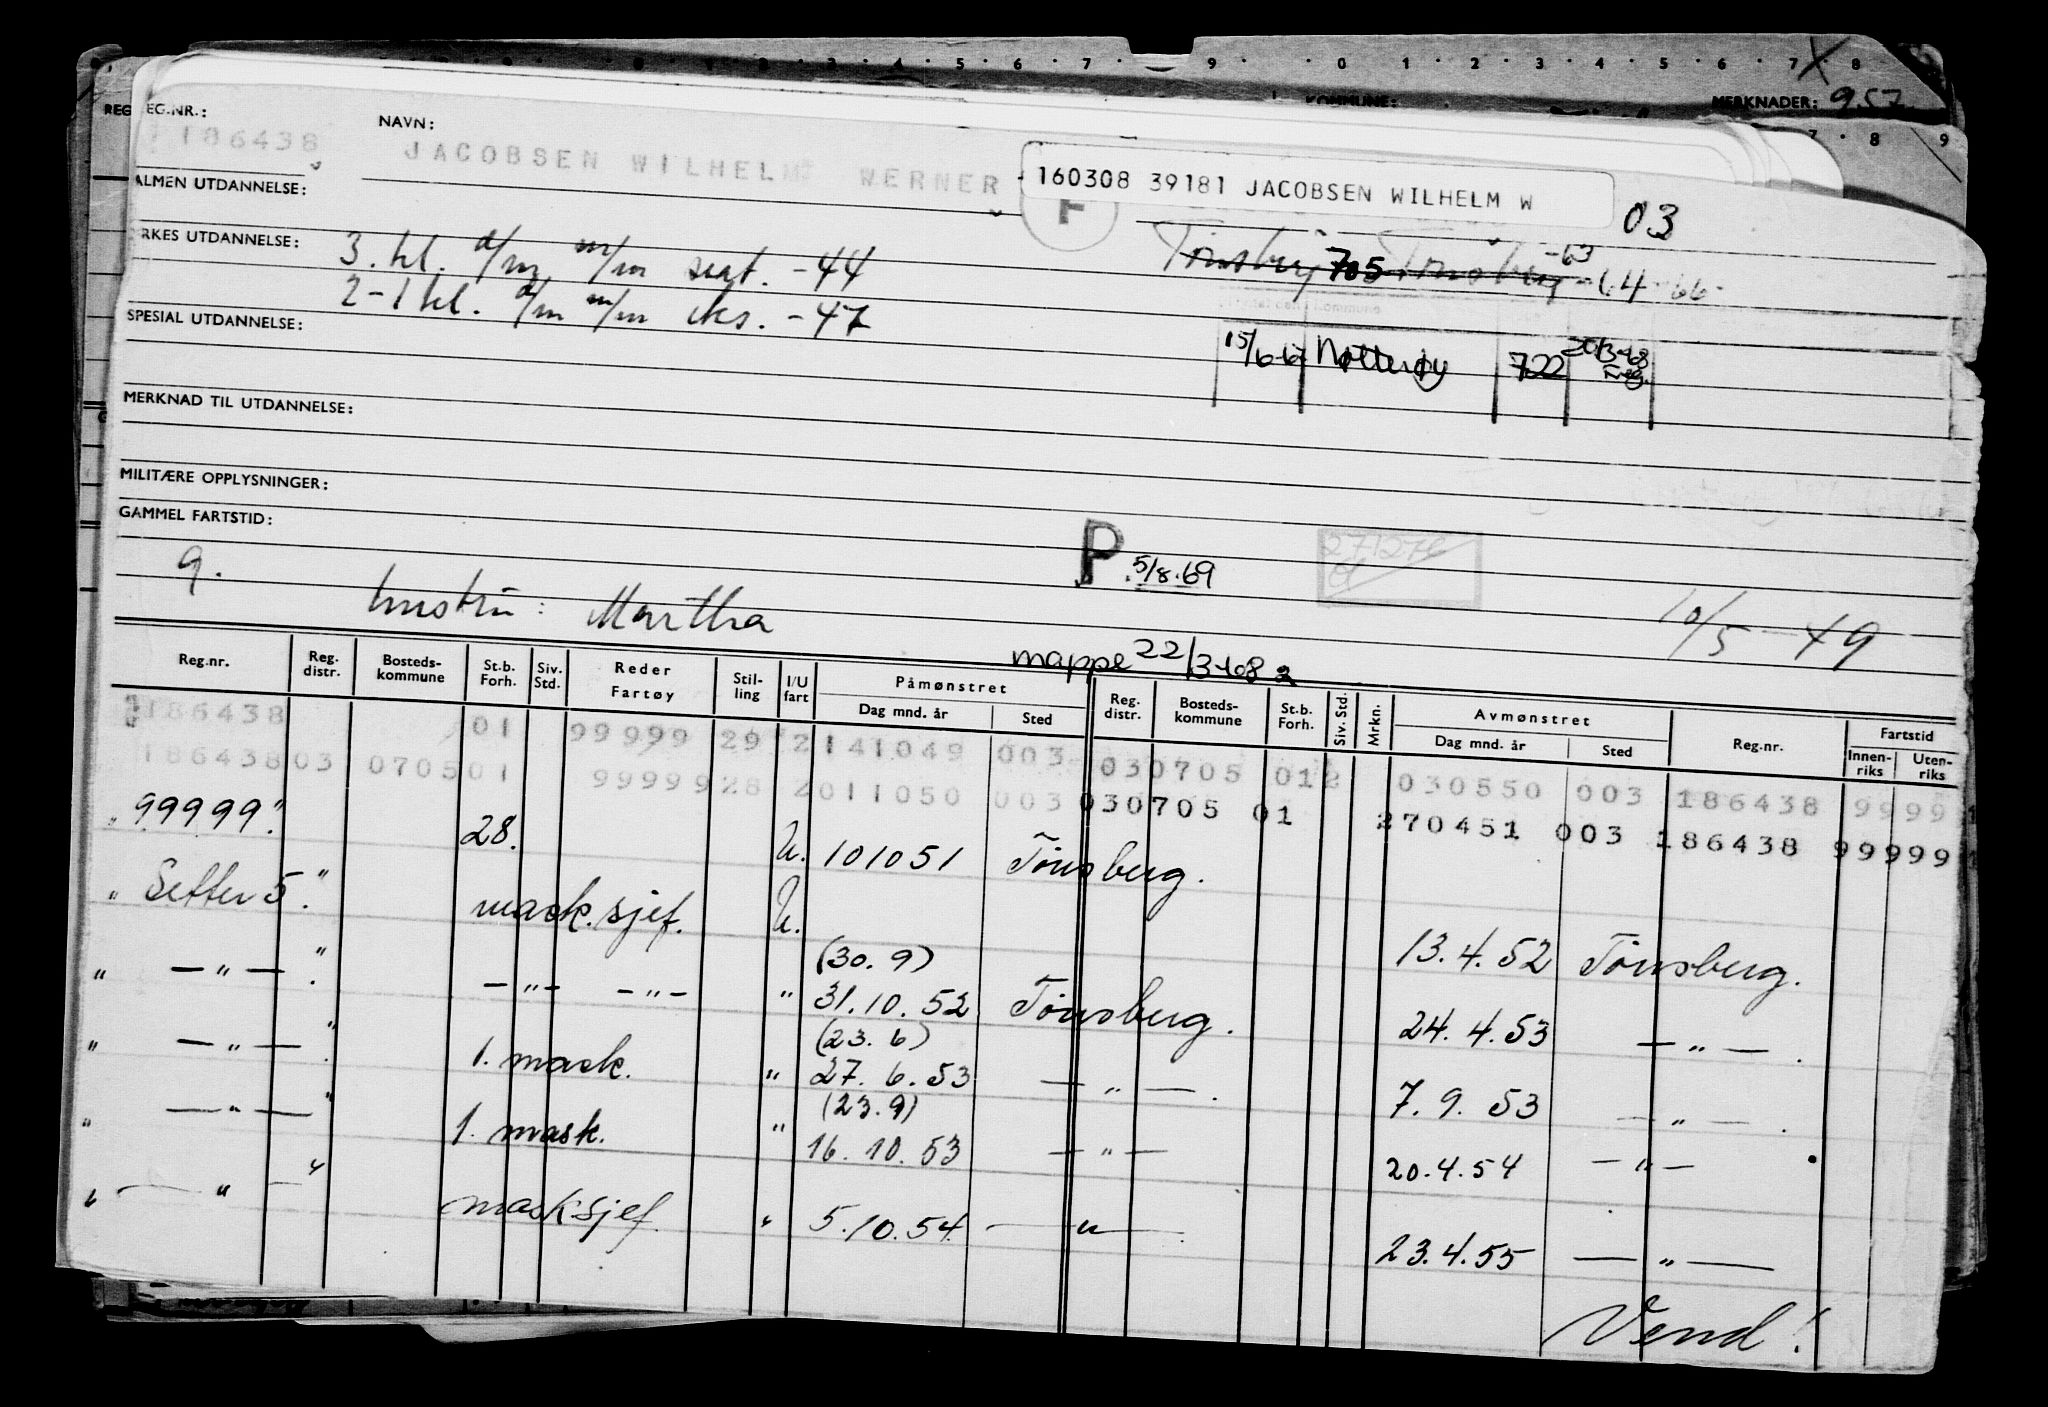 MERKNADER: 957
KOMMUNE:
REG.NR.:
186438
NAVN:
JACOBSEN WILHELM WERNER
160308 39181 JACOBSEN WILHELM W
03
F
ALMEN UTDANNELSE:
YRKES UTDANNELSE:
3. kl. d/m m/m sert. -44
2-1 kl. d/m m/m eks. -47
Tønsberg 705 Tønsberg -63 -64 -66
SPESIAL UTDANNELSE:
15/6-67 Nøtterøy 722 20/3-68 Freg.
MERKNAD TIL UTDANNELSE:
MILITÆRE OPPLYSNINGER:
GAMMEL FARTSTID:
P 5/8.69
271276
9.
hustru: Martha
10/5-49
mappe 22/3-68
Reg.nr. Reg. distr. Bosteds-kommune St.b. Forh. Siv. Std. Reder Fartøy Stil-ling I/U fart Påmønstret Dag mnd. år Sted Reg. distr. Bosteds-kommune St.b. Forh. Siv. Std. Mrkn. Avmønstret Dag mnd. år Sted Reg.nr. Fartstid Innen-riks Uten-riks
186438 01 99999 29 2 141049 003 030705 012 030550 003 186438 9999
186438 03 0705 01 99999 28 2 011050 003 030705 01 270451 003 186438 99999
" 99999." 28. U. 101051 Tønsberg.
" Setter 5." mask.sjef. U. 13.4.52 Tønsberg.
(30.9)
" —"— ". —"— —"— " 31.10.52 Tønsberg. 24.4.53 —"— .
(23.6)
" —"— ". 1. mask. " 27.6.53 —"— . 7.9.53 —"— .
(23.9)
" —"— " 1. mask. " 16.10.53 —"— 20.4.54 —"—
" —"— " masksjef " 5.10.54 —"— 23.4.55 —"—
Vend!